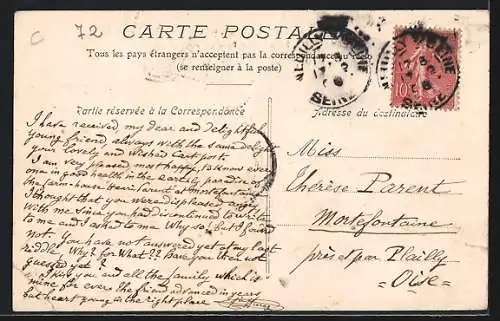 C 72
CARTE POSTALE
Tous les pays étrangers n'acceptent pas la correspondance au
(se renseigner à la poste)
NEUILLY SEINE
SEINE
10
Partie réservée à la Correspondance
Adresse du destinataire
I have received, my dear and delightful
young friend, always with the same
your lovely and wished Cart post.
I am very pleased most happy, to know every
one in good health in the early paradise
the farm-house Parent at mortefontaine
I thought that you were displeased, angry
With me since you had discontinued to write
to me and I asked to me. Why so? but I found
not. You have not answered yet of my last
riddle. Why? for What?? have you then not
guessed yet?
I kiss you and all the family which is
mine for ever. the friend advanced in years
but heart young in the right place
Miss
Thérèse Parent
Mortefontaine
près par Plailly
=Oise=